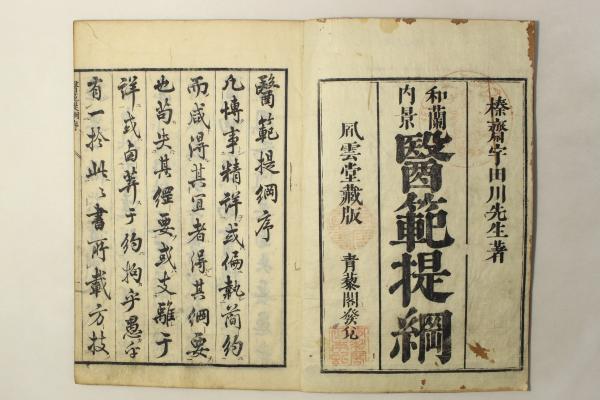 榛齋宇田川先生著
和蘭
内景
醫範提綱
風雲堂藏版
青藜閣發兌
醫範提綱序
凡博事精詳或偏執簡約
而咸得其宜者得其綱要
也苟失其經要或支離于
詳或鹵莽于約拘乎愚乎
有一於此々書所載方技